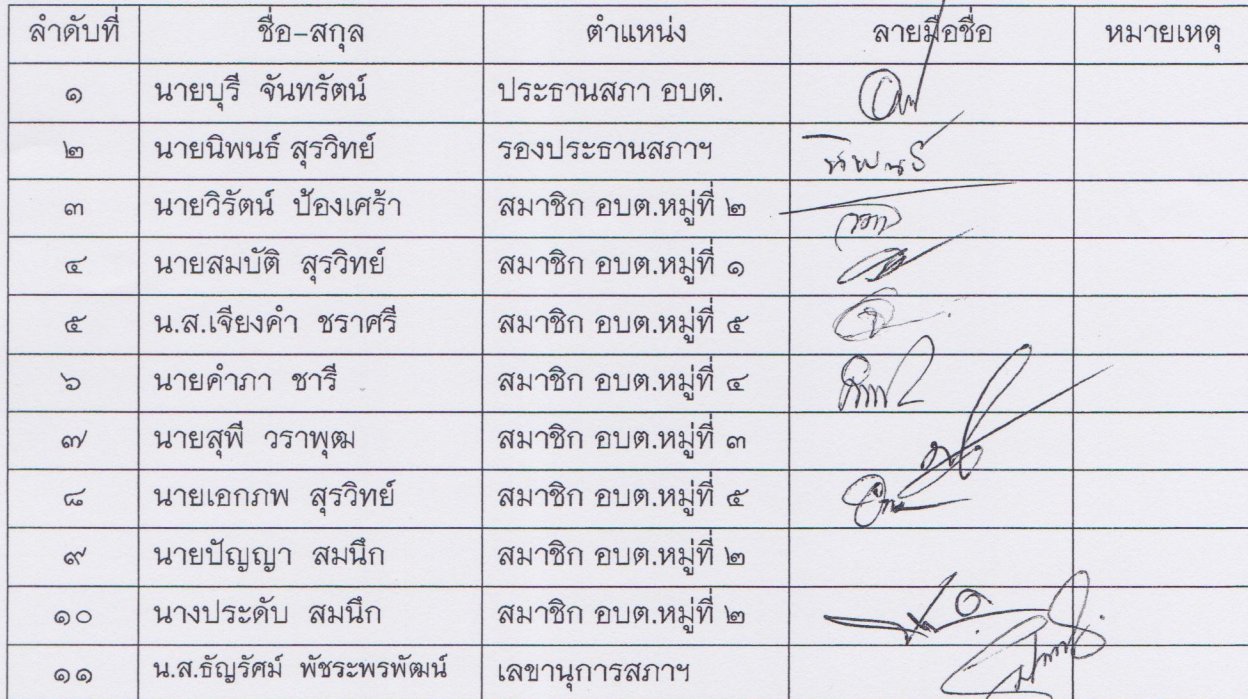 ลำดับที่ ชื่อ-สกุล ตำแหน่ง ลายมือชื่อ หมายเหตุ
๑ นายบุรี จันทรัตน์ ประธานสภา อบต.
๒ นายนิพนธ์ สุรวิทย์ รองประธานสภาฯ นิพนธ์
๓ นายวิรัตน์ ป้องเศร้า สมาชิก อบต.หมู่ที่ ๒
๔ นายสมบัติ สุรวิทย์ สมาชิก อบต.หมู่ที่ ๑
๕ น.ส.เจียงคำ ชราศรี สมาชิก อบต.หมู่ที่ ๕
๖ นายคำภา ชารี สมาชิก อบต.หมู่ที่ ๔
๗ นายสุพี วราพุฒ สมาชิก อบต.หมู่ที่ ๓
๘ นายเอกภพ สุรวิทย์ สมาชิก อบต.หมู่ที่ ๕
๙ นายปัญญา สมนึก สมาชิก อบต.หมู่ที่ ๒
๑๐ นางประดับ สมนึก สมาชิก อบต.หมู่ที่ ๒
๑๑ น.ส.ธัญรัศม์ พัชระพรพัฒน์ เลขานุการสภาฯ